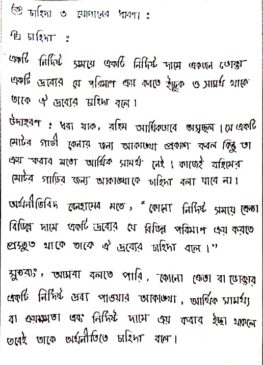 চাহিদা ও যোগানের ধারণা :
চাহিদা :
একটি নির্দিষ্ট সময়ে একটি নির্দিষ্ট দামে একজন ভোক্তা
একটি দ্রব্যের যে পরিমাণ ক্রয় করতে ইচ্ছুক ও সামর্থ থাকে
তাকে ঐ দ্রব্যের চাহিদা বলে।
উদাহরণ : ধরা যাক, রহিম আর্থিকভাবে অসচ্ছল। সে একটি
মোটর গাড়ী কেনার জন্য আকাঙ্খা প্রকাশ করল কিন্তু তা
ক্রয় করার মতো আর্থিক সামর্থ নেই। কাজেই রহিমের
মোটর গাড়ির জন্য আকাঙ্খাকে চাহিদা বলা যাবে না।
অর্থনীতিবিদ বেনহামের মতে, "কোনো নির্দিষ্ট সময়ে ক্রেতা
বিভিন্ন দামে একটি দ্রব্যের যে বিভিন্ন পরিমাণ ক্রয় করতে
প্রস্তুত থাকে তাকে ঐ দ্রব্যের চাহিদা বলে।"
সুতরাং, আমরা বলতে পারি, "কোনো ক্রেতা বা ভোক্তার
একটি নির্দিষ্ট দ্রব্য পাওয়ার আকাঙ্খা, আর্থিক সামর্থ্য
বা ক্রয়ক্ষমতা এবং নির্দিষ্ট দামে ক্রয় করার ইচ্ছা থাকলে
তবেই তাকে অর্থনীতিতে চাহিদা বলে।